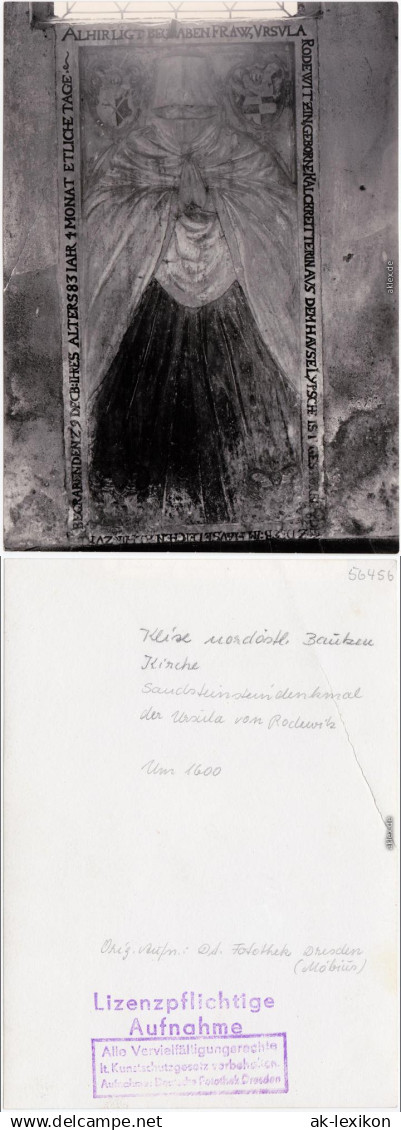 ALHIR LIGT BEGRABEN FRAW, VRSVLA
RODEWITZIN, GEBORNE KALCKREITTERIN AUS DEM HAUSE
BEGRABEN DEN 29 DECB: IHES ALTERS 83 IAHR 4 MONAT ETLICHE TAGE
aklex.de
56456
Klixe nordöstl. Bautzen
Kirche
Sandsteinsteindenkmal
der Ursula von Rodewitz
Um 1600
aklex.de
Orig. Aufn.: Dt. Fotothek Dresden
(Möbius)
Lizenzpflichtige
Aufnahme
Alle Vervielfältigungsrechte
lt. Kunstschutzgesetz vorbehalten.
Aufnahme: Deutsche Fotothek Dresden
www.delcampe.net
ak-lexikon